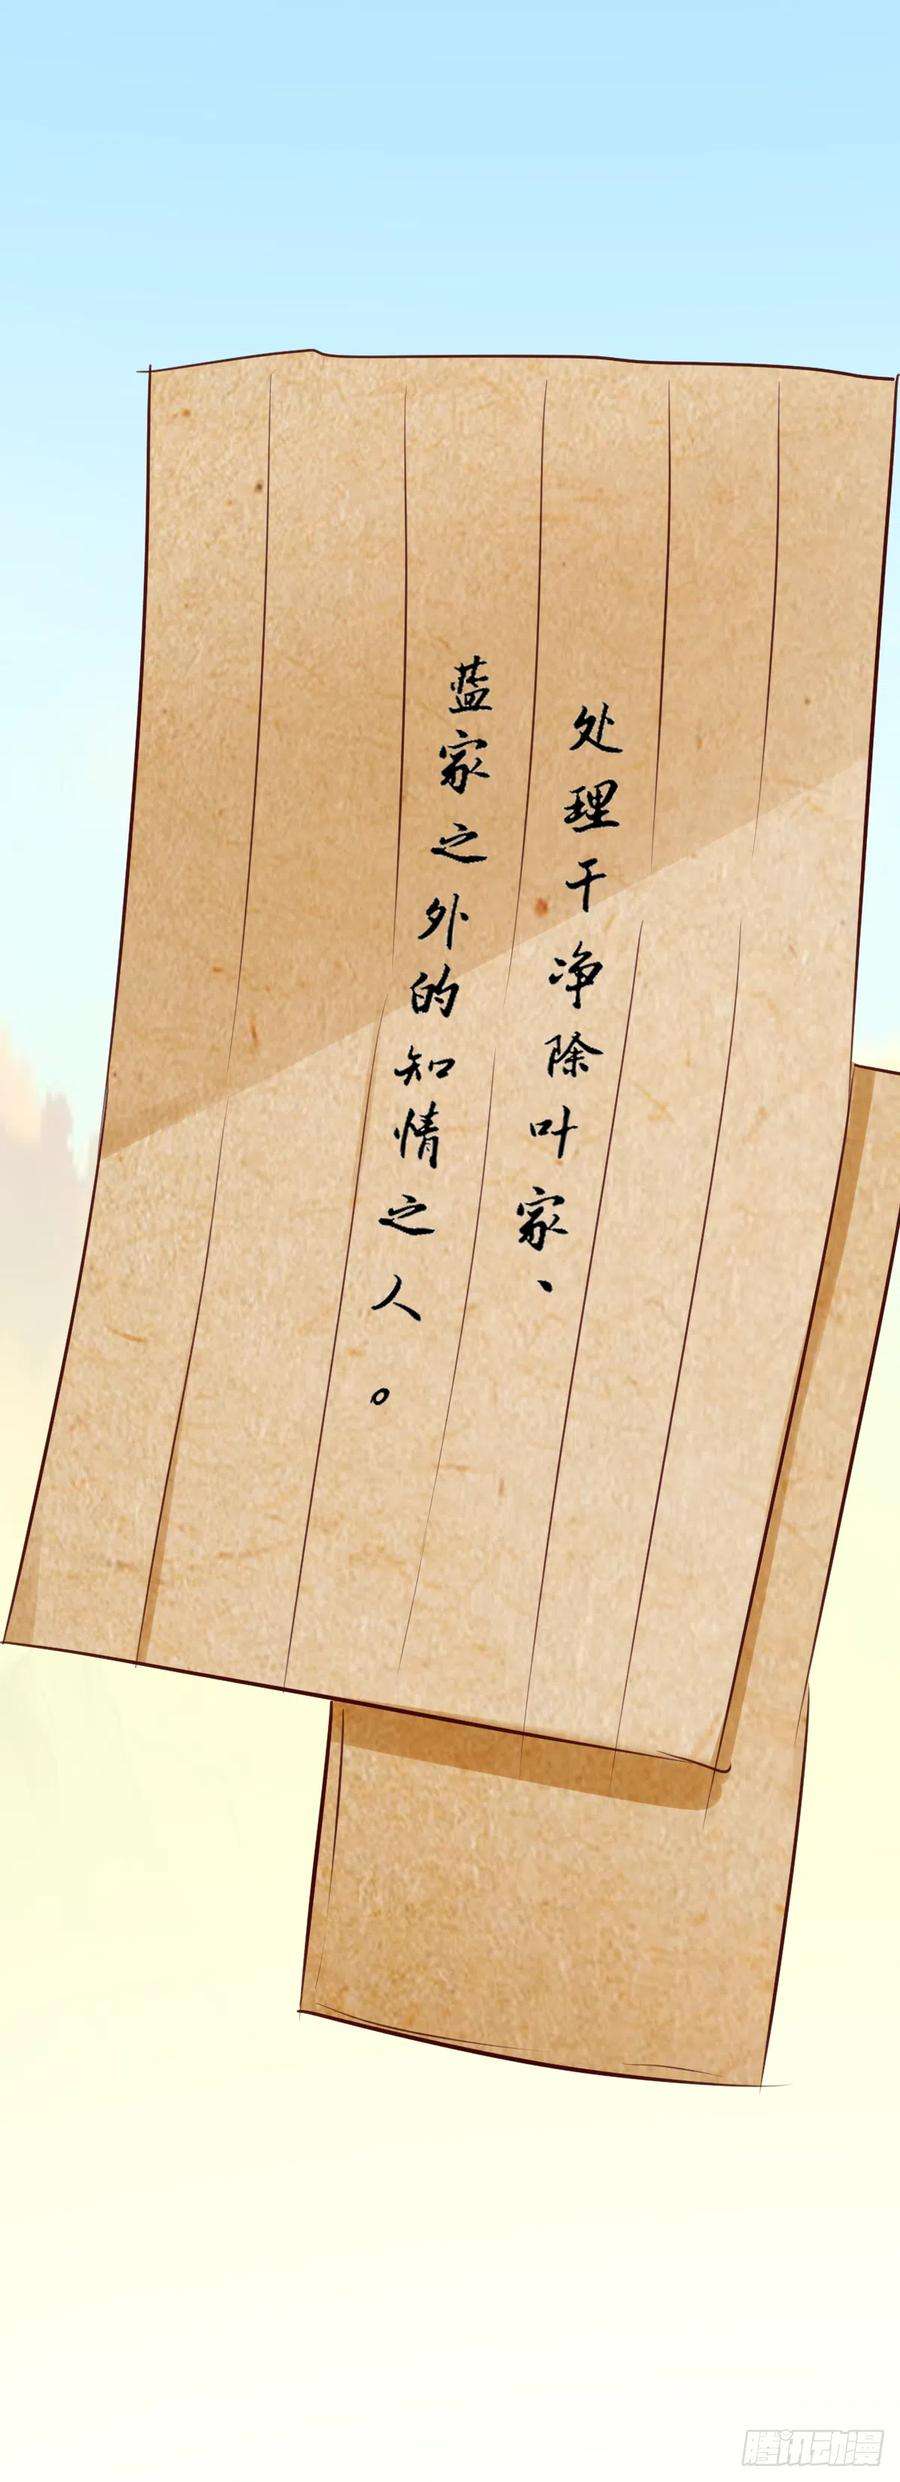 处理干净除叶家、
蓝家之外的知情之人。
腾讯动漫